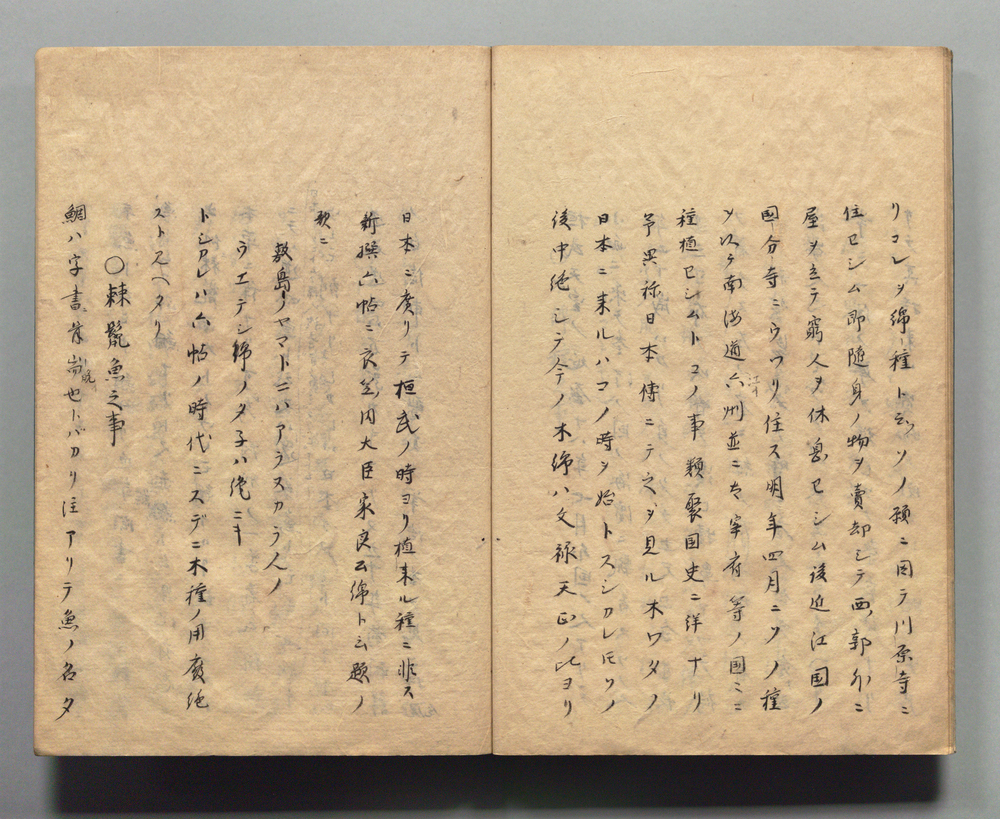 リコレヲ綿ノ種ト云ソノ願ニ因テ川原寺ニ
住セシム即随身ノ物ヲ賣却シテ西郭外ニ
屋ヲ立テ窮人ヲ休息セシム後近江国ノ
國分寺ニウツリ住ス明年四月ニソノ種
ヲ以テ南海道六州並ニ太宰府等ノ国ニ
種植セシムトコノ事類聚国史ニ詳ナリ
予異称日本傳ニテ之ヲ見ル木ワタノ
日本ニ来ルハコノ時ヲ始トスシカレ𪜈ソノ
後中絶シテ今ノ木綿ハ文禄天正ノ比ヨリ
日本ニ廣リテ桓武ノ時ヨリ植来ル種ニ非ス
新撰六帖ニ衣笠内大臣家良公綿ト云題ノ
歌ニ
敷島ノヤマトニハアラヌカラ人ノ
ウエテシ綿ノタ子ハ絶ニキ
トシアレハ六帖ノ時代ニスデニ木種ノ用廢絶
ストスヘタリ
○棘鬣魚之事
鯛ハ字書骨耑也トバカリ注アリテ魚ノ名タ